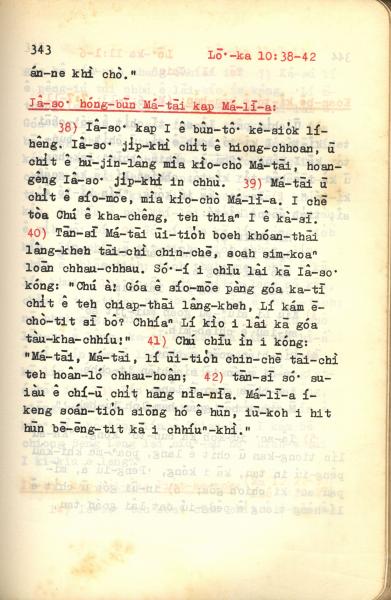 343
Lō·-ka 10:38-42
án-ne khì chò."
Iâ-so· hóng-būn Má-tāi kap Má-lī-a:
38) Iâ-so· kap I ê bûn-tô· kè-sio̍k lí-
hêng. Iâ-so· ji̍p-khì chi̍t ê hiong-chhoan, ū
chi̍t ê hū-jîn-lâng mia kìo-chò Má-tāi, hoan-
gêng Iâ-so· ji̍p-khì in chhù. 39) Má-tāi ū
chi̍t ê sío-mōe, mia kìo-chò Má-lī-a. I chē
tòa Chú ê kha-chêng, teh thiaⁿ I ê kà-sī.
40) Tān-sī Má-tāi ūi-tio̍h boeh khóan-thāi
lâng-kheh tāi-chì chin-chē, soah sim-koaⁿ
loān chhau-chhau. Só·-í i chīu lâi kā Iâ-so·
kóng: "Chú à! Góa ê sío-mōe pàng góa ka-tī
chi̍t ê teh chiap-thāi lâng-kheh, Lí kám ē-
chò-tit sī bô? Chhíaⁿ Lí kìo i lâi kā góa
tàu-kha-chhíu!" 41) Chú chīu in i kóng:
"Má-tāi, Má-tāi, lí ūi-tio̍h chin-chē tāi-chì
teh hoân-ló chhau-hoân; 42) tān-sī só· su-
iàu ê chí-ū chi̍t hāng nīa-nīa. Má-lī-a í-
keng soán-tio̍h siōng hó ê hūn, iū-koh i hit
hūn bē-ēng-tit kā i chhíuⁿ-khì."